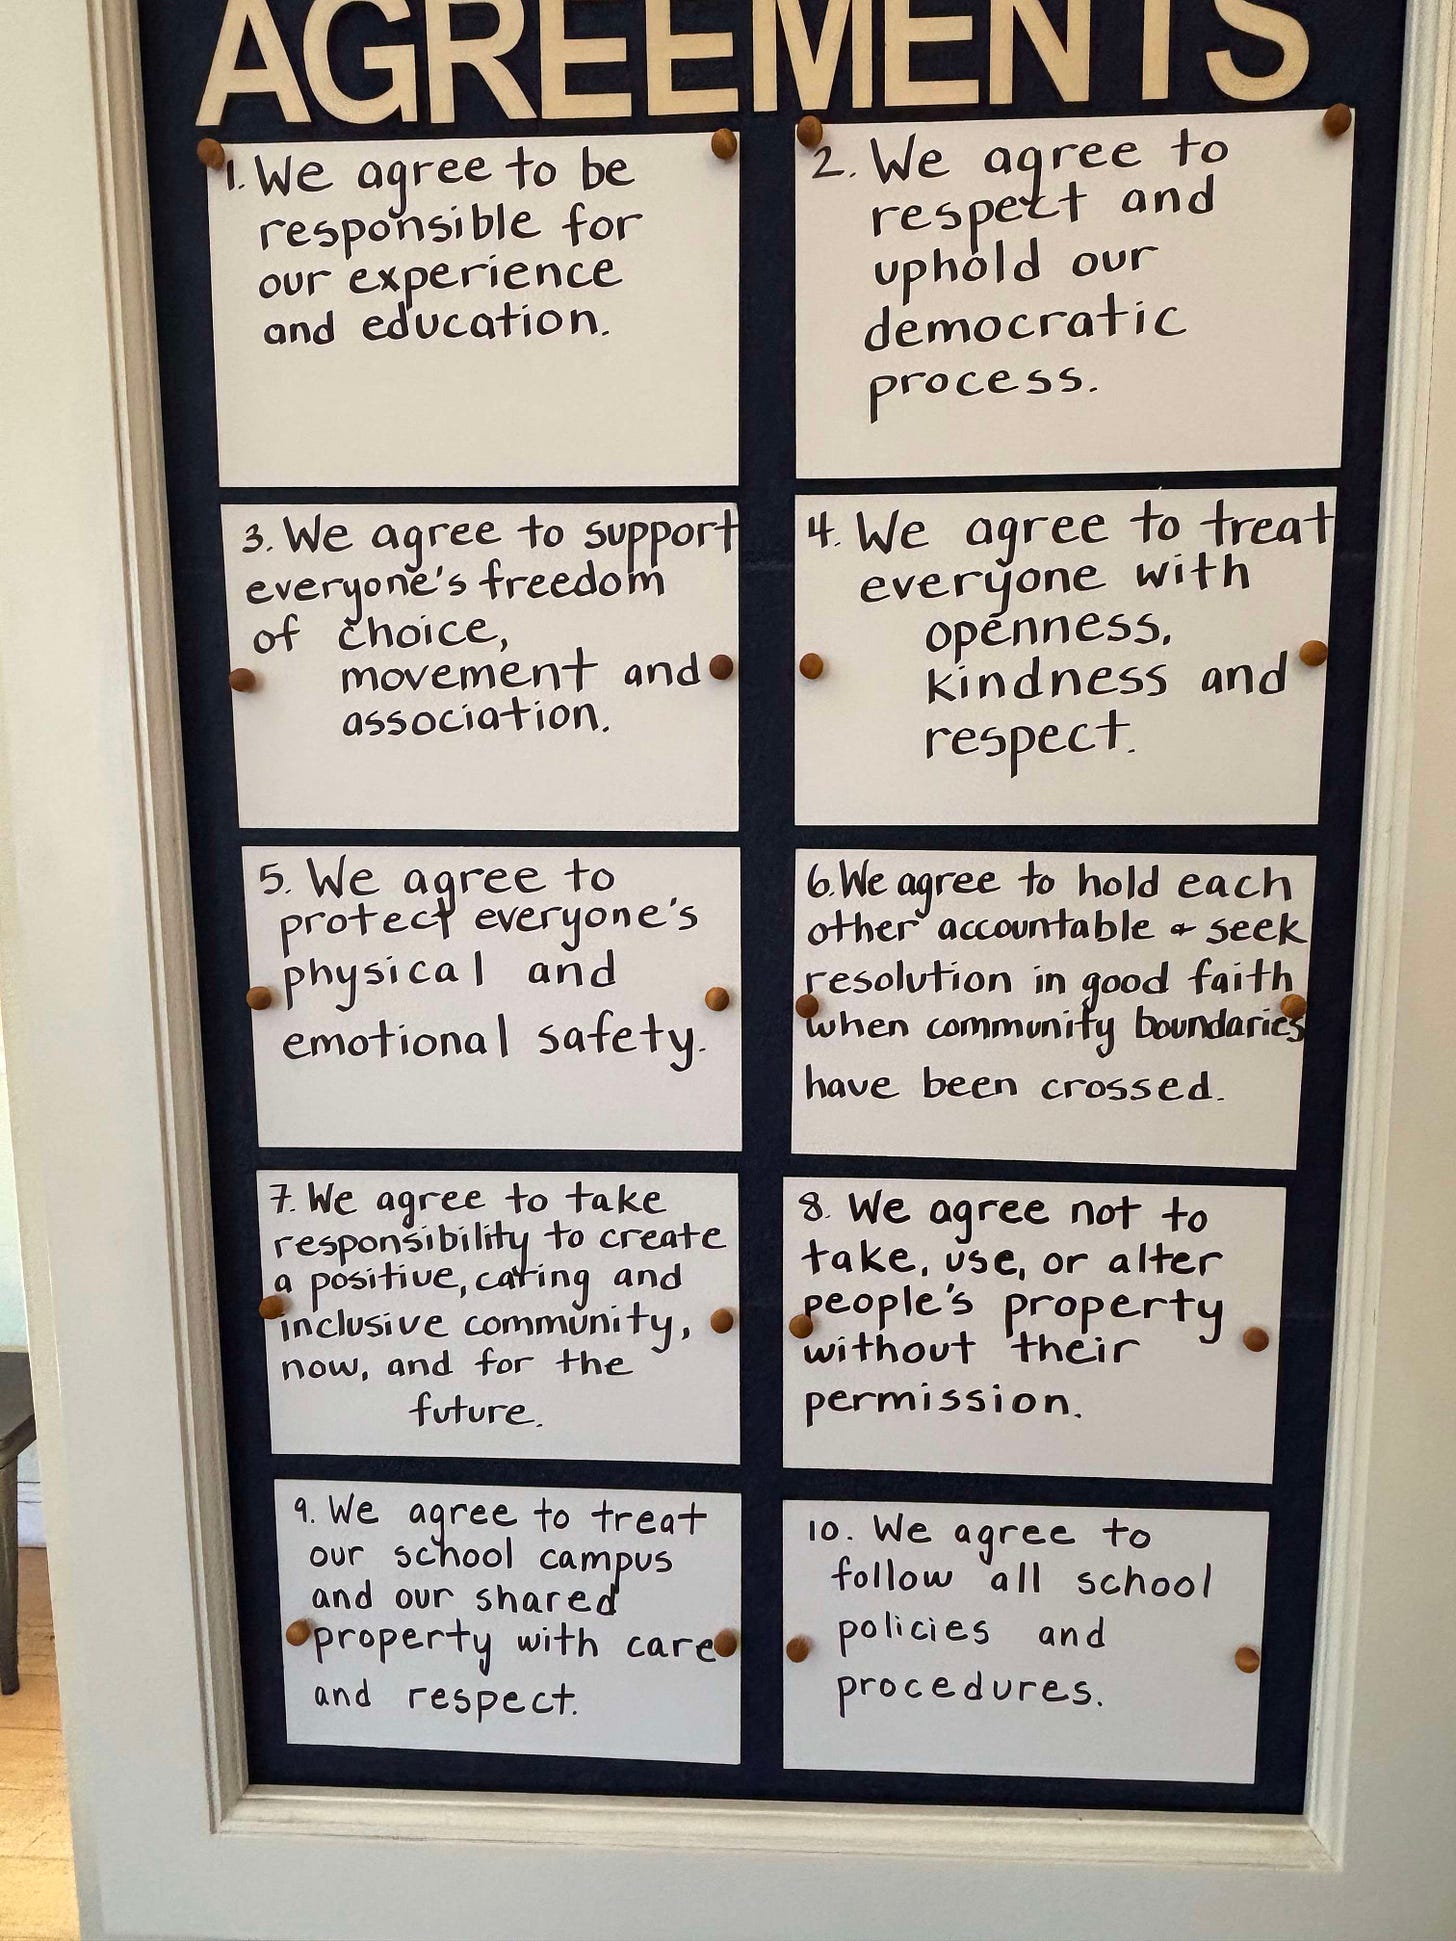 AGREEMENTS
1. We agree to be
responsible for
our experience
and education.
2. We agree to
respect and
uphold our
democratic
process.
3. We agree to support
everyone's freedom
of choice,
movement and
association.
4. We agree to treat
everyone with
openness,
kindness and
respect.
5. We agree to
protect everyone's
physical and
emotional safety.
6. We agree to hold each
other accountable & seek
resolution in good faith
when community boundaries
have been crossed.
7. We agree to take
responsibility to create
a positive, caring and
inclusive community,
now, and for the
future.
8. We agree not to
take, use, or alter
people's property
without their
permission.
9. We agree to treat
our school campus
and our shared
property with care
and respect.
10. We agree to
follow all school
policies and
procedures.